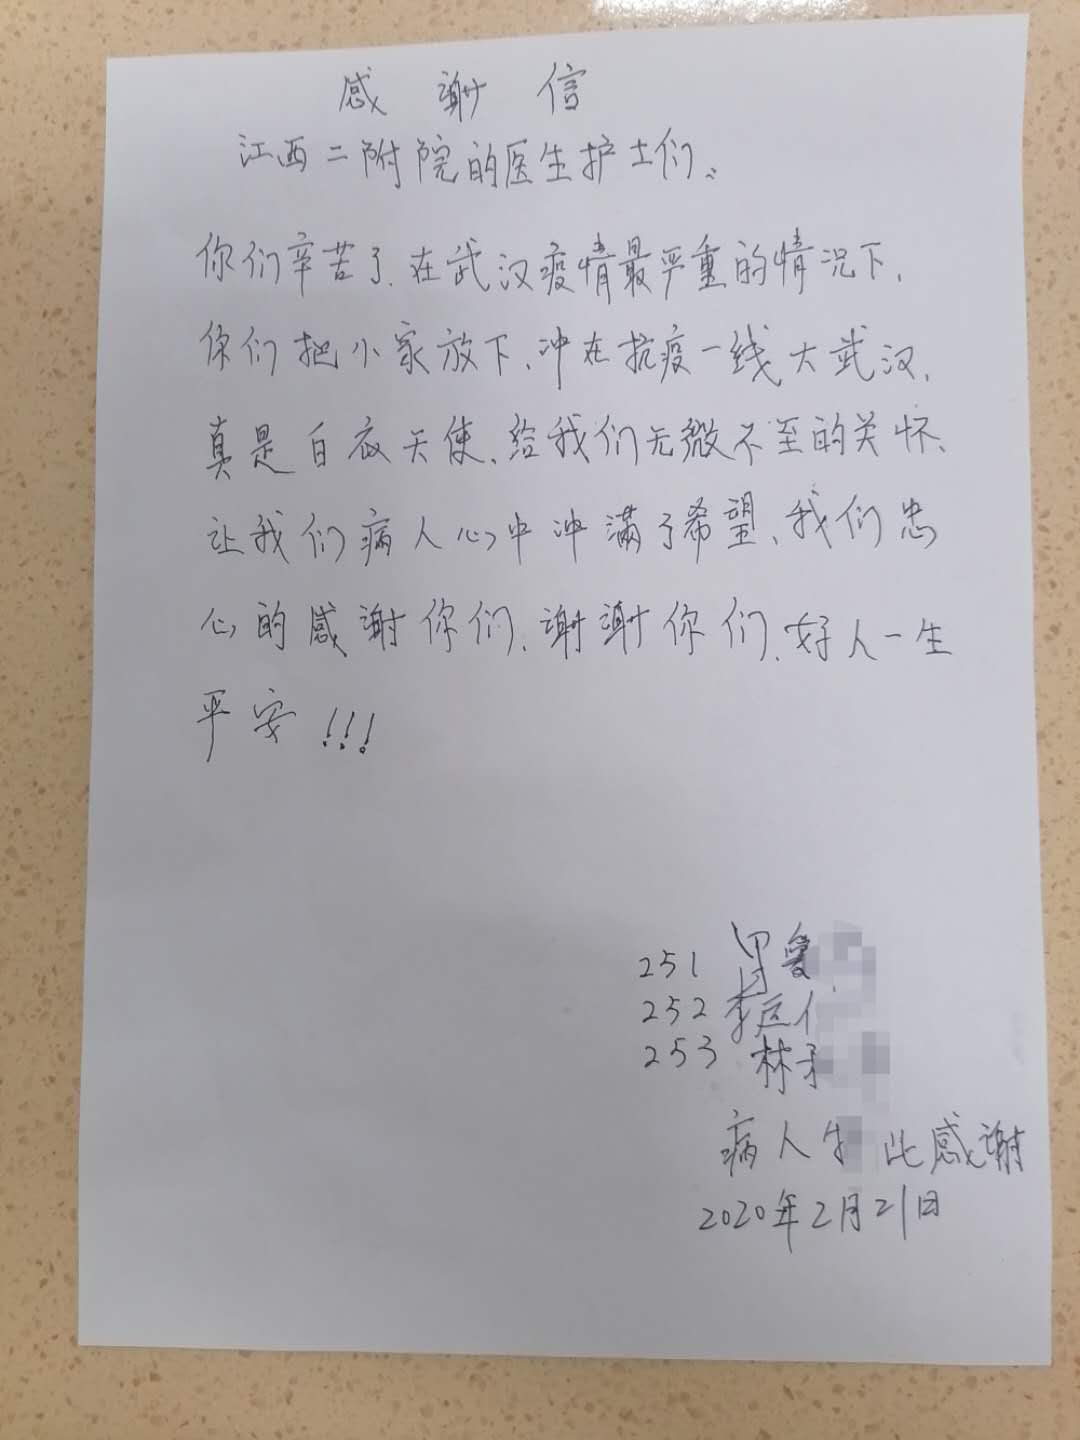 感谢信
江西二附院的医生护士们:
你们辛苦了.在武汉疫情最严重的情况下,
你们把小家放下,冲在抗疫一线大武汉,
真是白衣天使,给我们无微不至的关怀、
让我们病人心中冲满了希望、我们忠
心的感谢你们,谢谢你们,好人一生
平安!!!
251
252 李巨
253 林
病人 此感谢
2020年2月21日